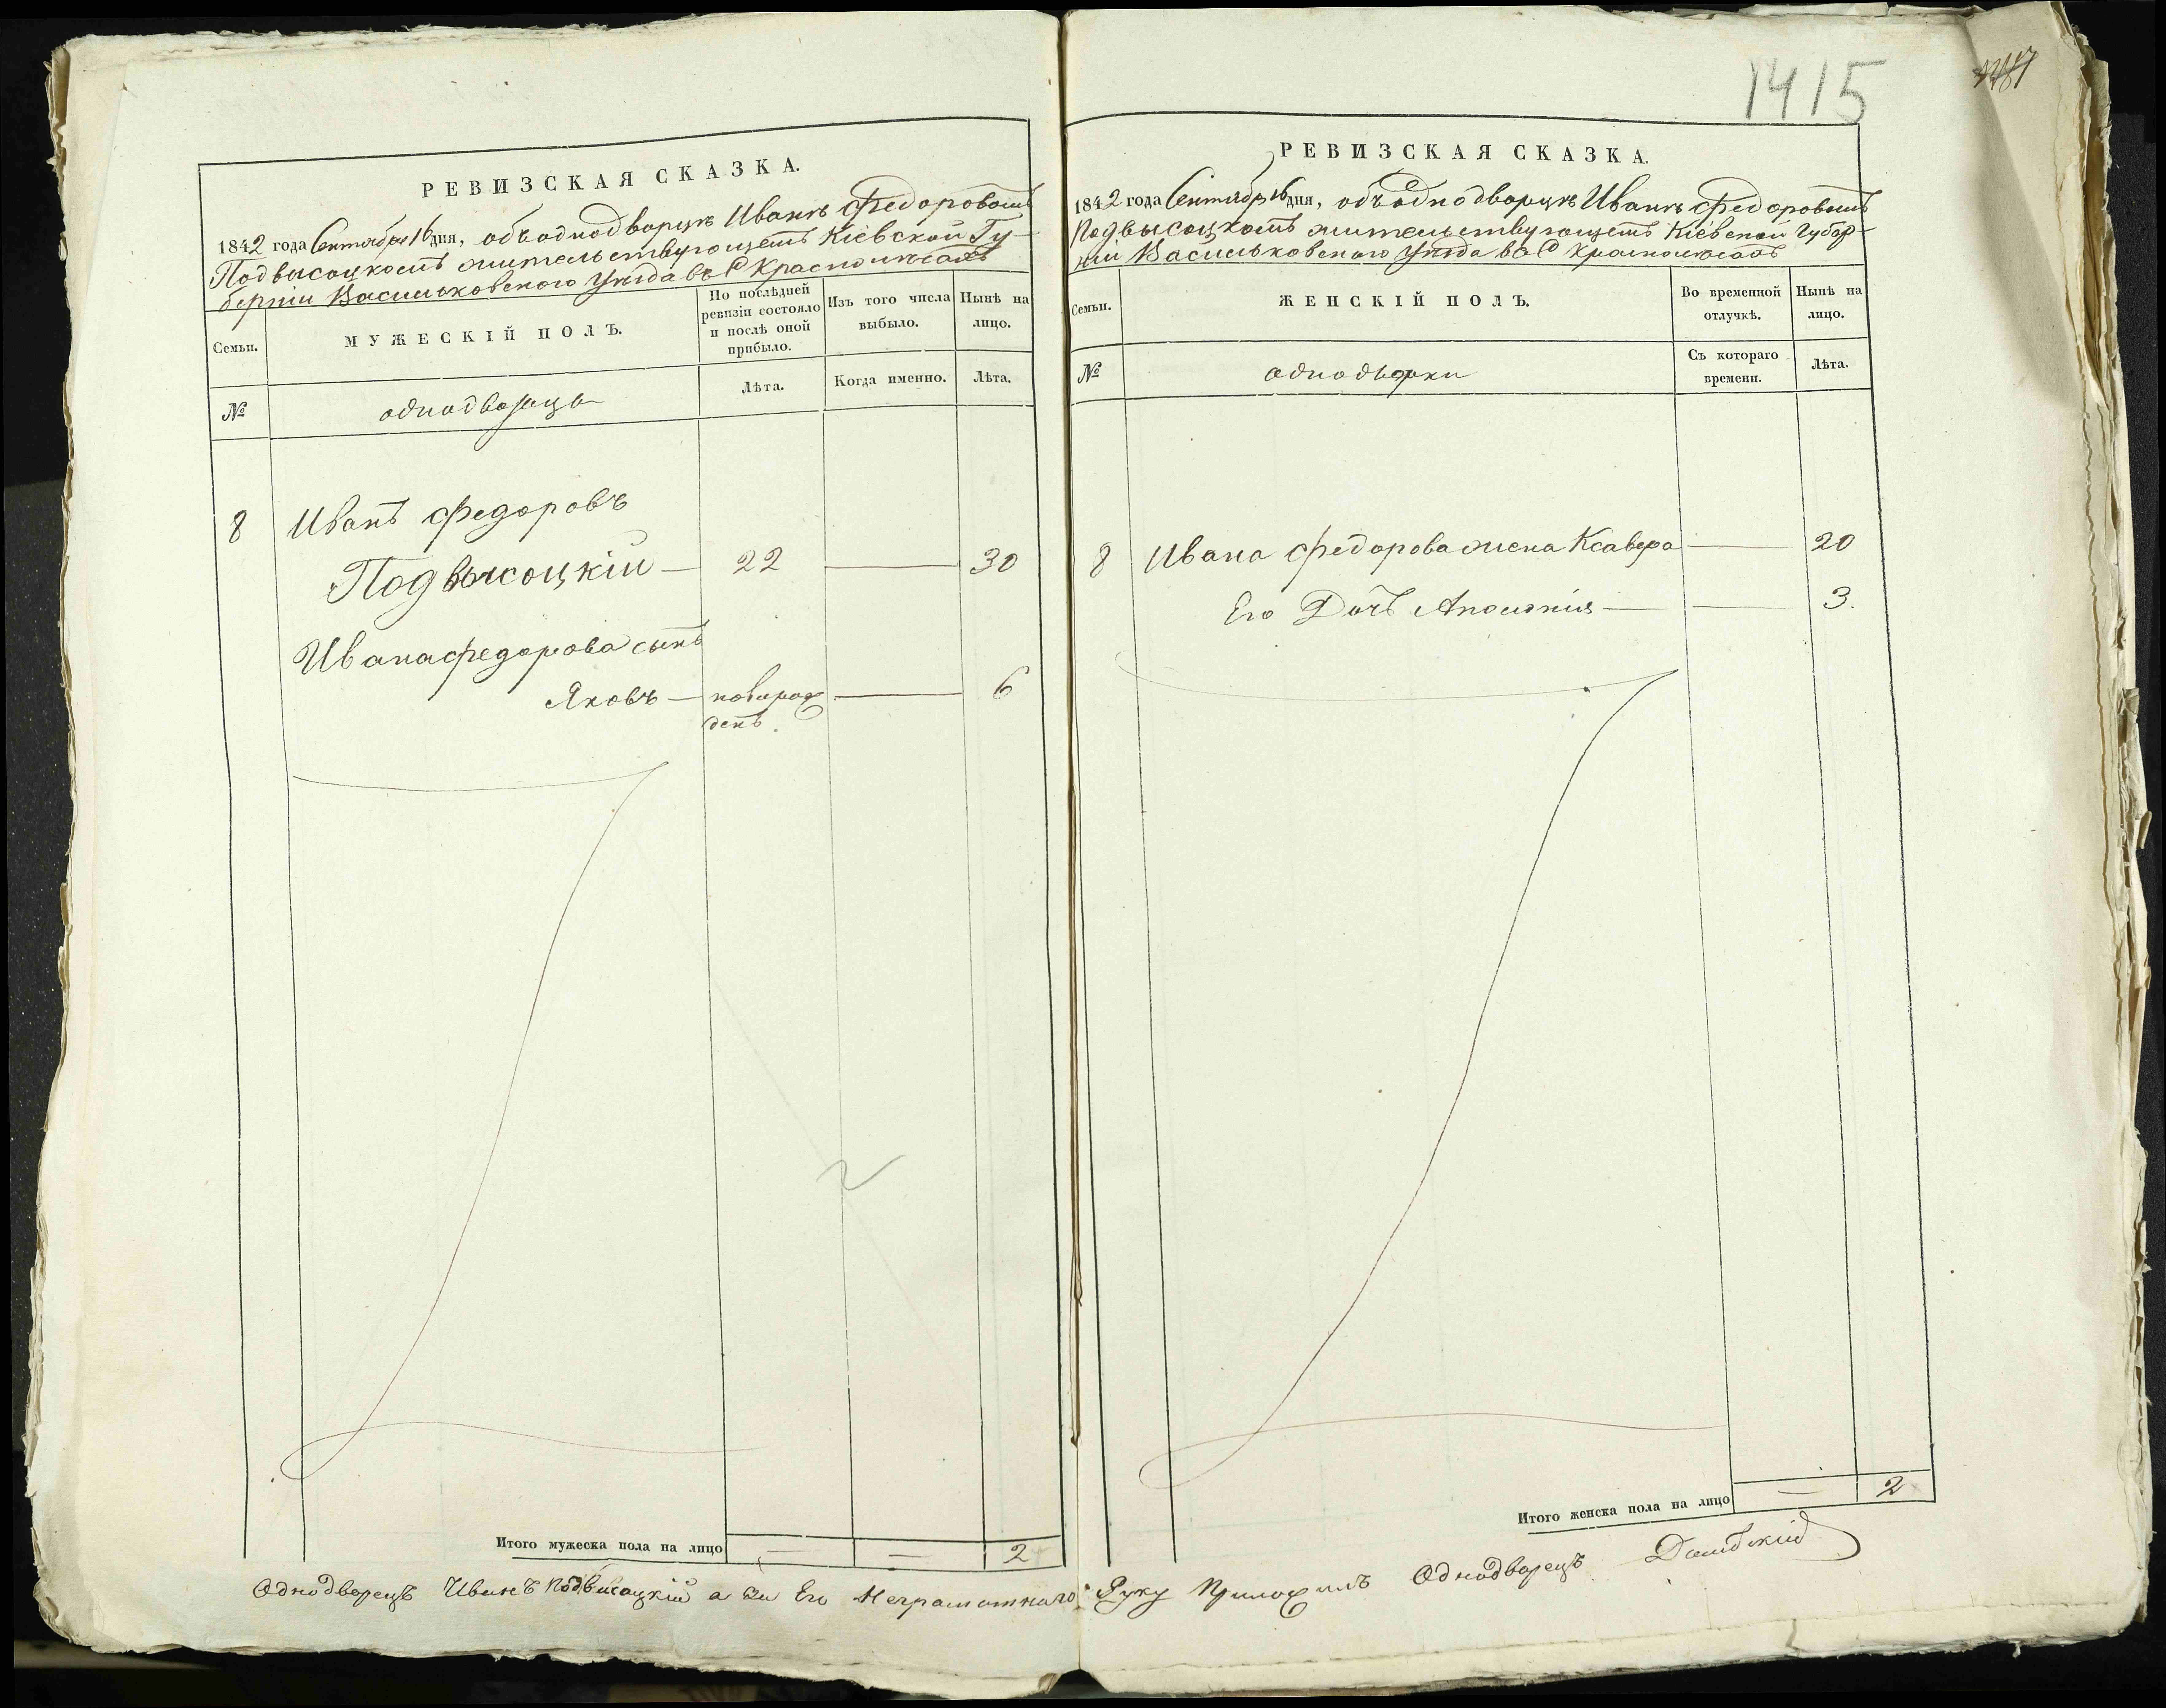 1415
РЕВИЗСКАЯ СКАЗКА.
1842 года Сентября 16 дня, объ однодворцѣ Иванѣ Федоровомъ
Подвысоцкомъ жительствующемъ Кіевской Гу-
берніи Васильковского уѣзда въ С
Семьи.
МУЖЕСКІЙ ПОЛЪ.
По послѣдней ревизіи состояло и послѣ оной прибыло.
Изъ того числа выбыло.
Нынѣ на лицо.
№
однодворцы
Лѣта.
Когда именно.
Лѣта.
8 Иванъ Федоровъ
Подвысоцкій — 22 — 30
Ивана Федорова сынъ
Яковъ — новорож — 6
денъ.
Итого мужеска пола на лицо — — 2
Однодворецъ Иванъ Подвисоцкій а за Его Неграмотнаго
РЕВИЗСКАЯ СКАЗКА.
1842 года Сентября 16 дня, объ однодворцѣ Иванѣ Федоровомъ
Подвысоцкомъ жительствующемъ Кіевской Губер-
ніи Васильковского уѣзда въ С
Семьи.
ЖЕНСКІЙ ПОЛЪ.
Во временной отлучкѣ.
Нынѣ на лицо.
№
однодворки
Съ котораго времени.
Лѣта.
8 Ивана Федорова жена Ксавера — 20
Его Дочь — — 3.
Итого женска пола на лицо — 2
Руку Приложилъ Однодворецъ